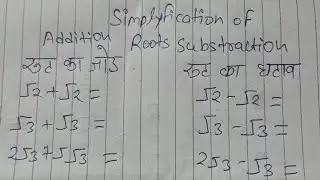 Simplyfication of
Addition Roots Substraction
रुट का जोड़ रुट का घटाव
√2+√2= √2-√2=
√3+√3= √3-√3=
2√3+√3= 2√3-√3=